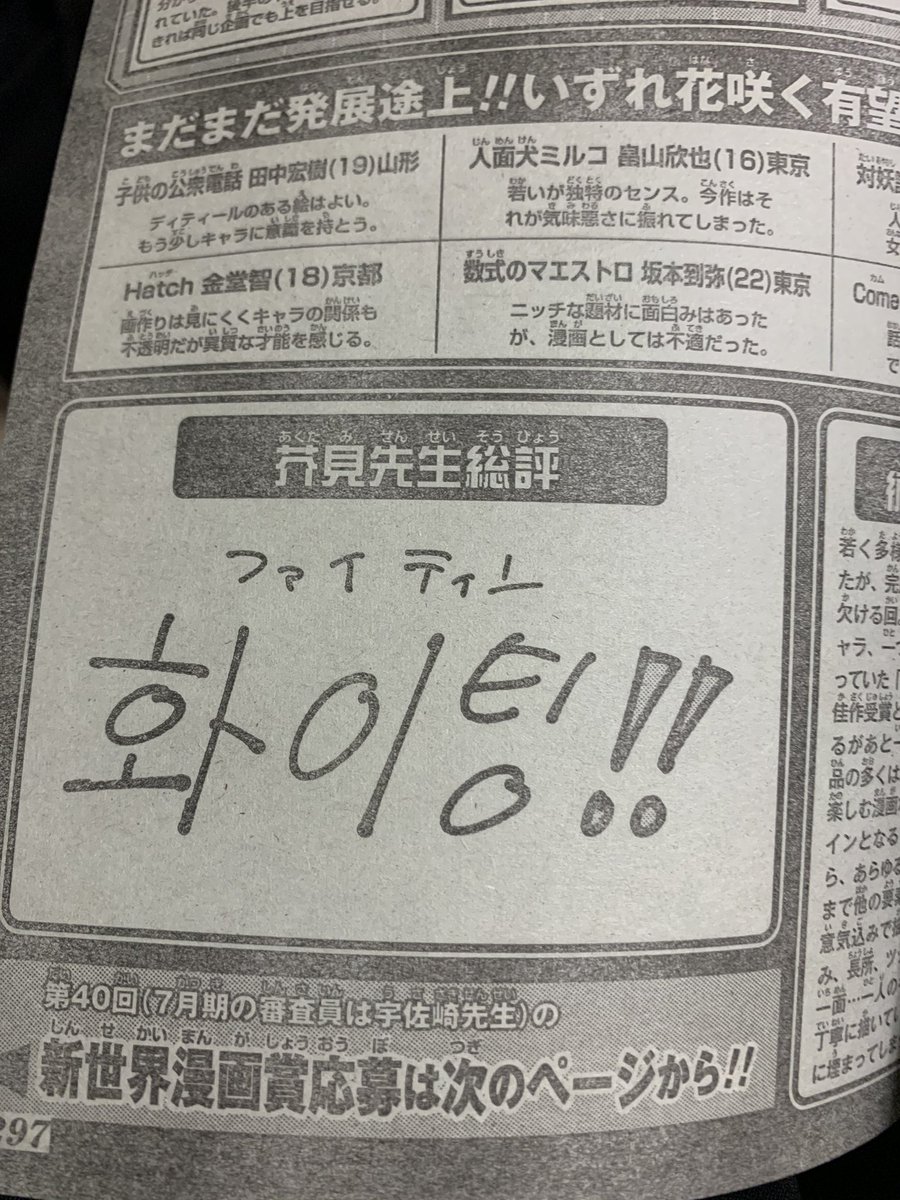 れていた。後半の
されば同じ企画でも上を目指せる。
まだまだ発展途上!!いずれ花咲く有望
子供の公衆電話 田中宏樹(19)山形
ディティールのある絵はよい。
もう少しキャラに意識を持とう。
人面犬ミルコ 畠山欣也(16)東京
若いが独特のセンス。今作はそ
れが気味悪さに振れてしまった。
Hatch 金堂智(18)京都
画作りは見にくくキャラの関係も
不透明だが異質な才能を感じる。
数式のマエストロ 坂本到弥(22)東京
ニッチな題材に面白みはあった
が、漫画としては不適だった。
対妖
人
女
Coma
話
で
芥見先生総評
ファイティン
화이팅!!
若く多様
たが、完
欠ける回
ャラ、一つ
っていた「
佳作受賞と
るがあと一
品の多くは
楽しむ漫画
インとなる
ら、あらゆる
まで他の要素
意気込みで描
み、長所、ツ
一面…一人の
丁寧に描いてい
に埋まってしま
第40回(7月期の審査員は宇佐崎先生)の
新世界漫画賞応募は次のページから!!
297